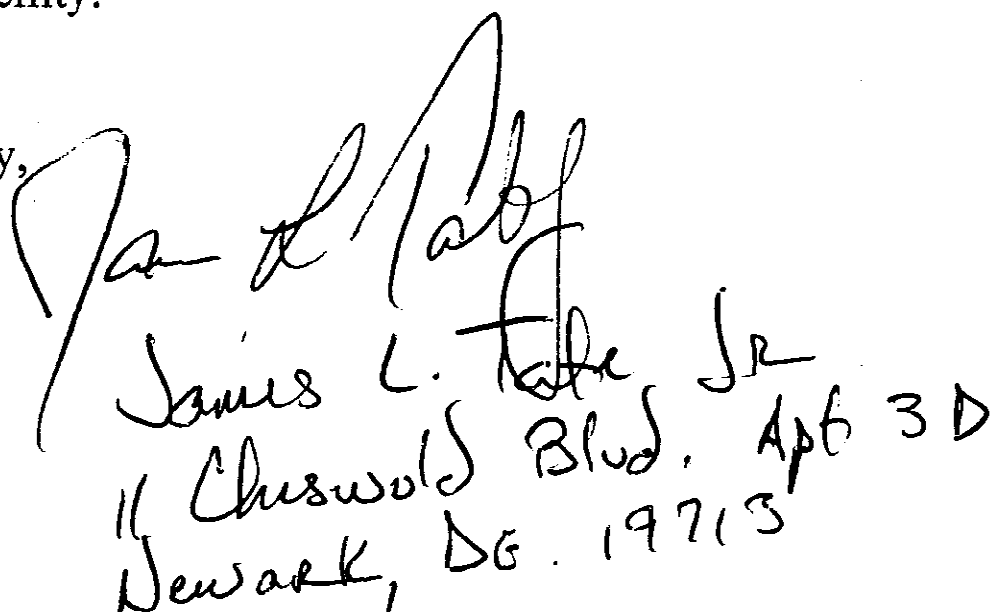 y,
James L. Tate Jr
11 Cheswold Blvd. Apt 3D
Newark, DE. 19713